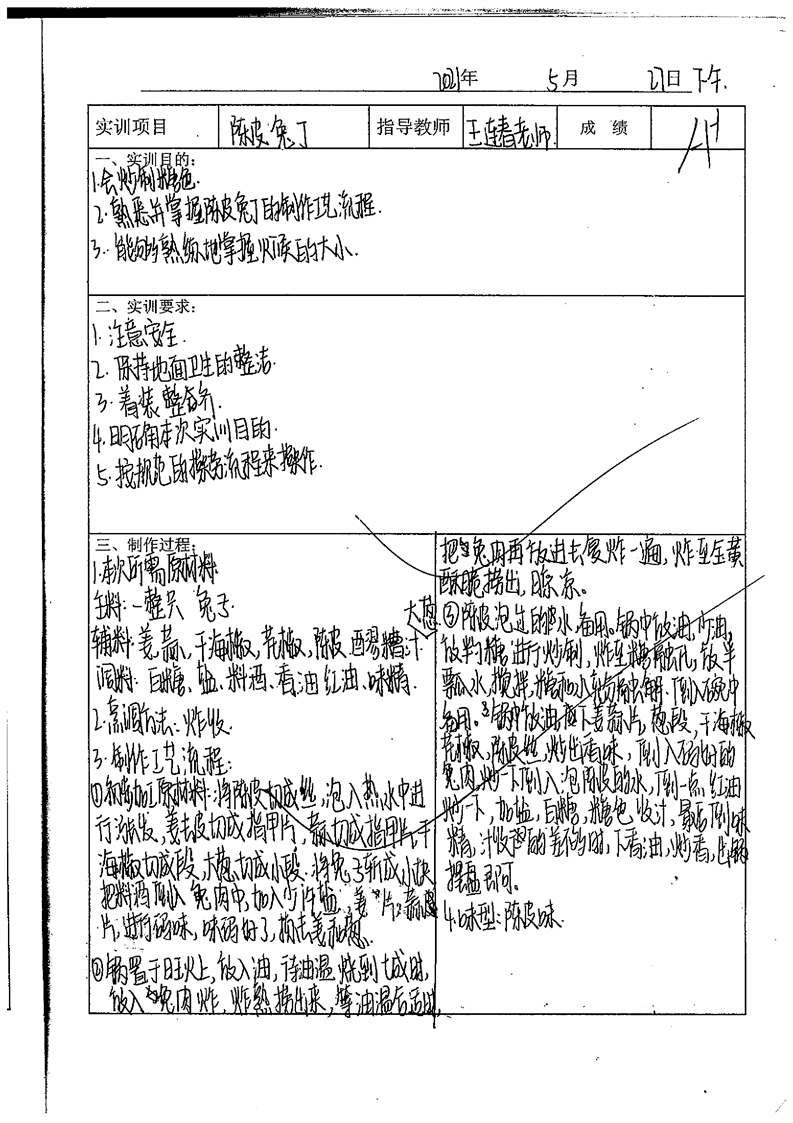 2021年 5月 27日 下午.
实训项目 陈皮兔丁 指导教师 王连春老师 成绩 A+
一、实训目的:
1.会炒制糖色.
2.熟悉并掌握陈皮兔丁的制作工艺流程.
3.能够熟练地掌握火候的大小.
二、实训要求:
1.注意安全.
2.保持地面卫生的整洁.
3.着装整齐.
4.明确本次实训目的.
5.按规范的操作流程来操作.
三、制作过程:
1.本次所需原材料
主料:一整只兔子
大葱
辅料:姜,蒜,干海椒,花椒,陈皮.醪糟汁
调料:白糖、盐、料酒、香油红油、味精.
2.烹调方法:炸收.
3.制作工艺流程:
①初步加工原材料:将陈皮切成丝,泡入热水中进
行涨发,姜去皮切成指甲片,蒜切成指甲片干
海椒切成段,大葱切成小段.将兔子斩成小块
把料酒倒入兔肉中,加入少许盐、姜片,蒜
片,进行码味,味码好了,拣去姜和葱.
②锅置于旺火上,放入油,待油温烧到七成时,
放入兔肉炸,炸熟捞出来,等油温合适时,
把兔肉再放进去复炸一遍,炸至金黄
酥脆捞出,晾凉。
③陈皮泡过的水备用.锅中放油,
放料糖进行炒制,炸至糖融化,放半
瓢水,搅拌,糖和水 倒入碗中
备用。锅中放油,下姜蒜片,葱段,干海椒
花椒,陈皮丝,炒出香味,倒入码好的
兔肉,炒一下倒入泡陈皮的水,倒一点红油
炒一下,加盐,白糖,糖色收汁,最后倒味
精,汁收的差不多时,下香油,炒香,出锅
摆盘即可。
4.味型:陈皮味.